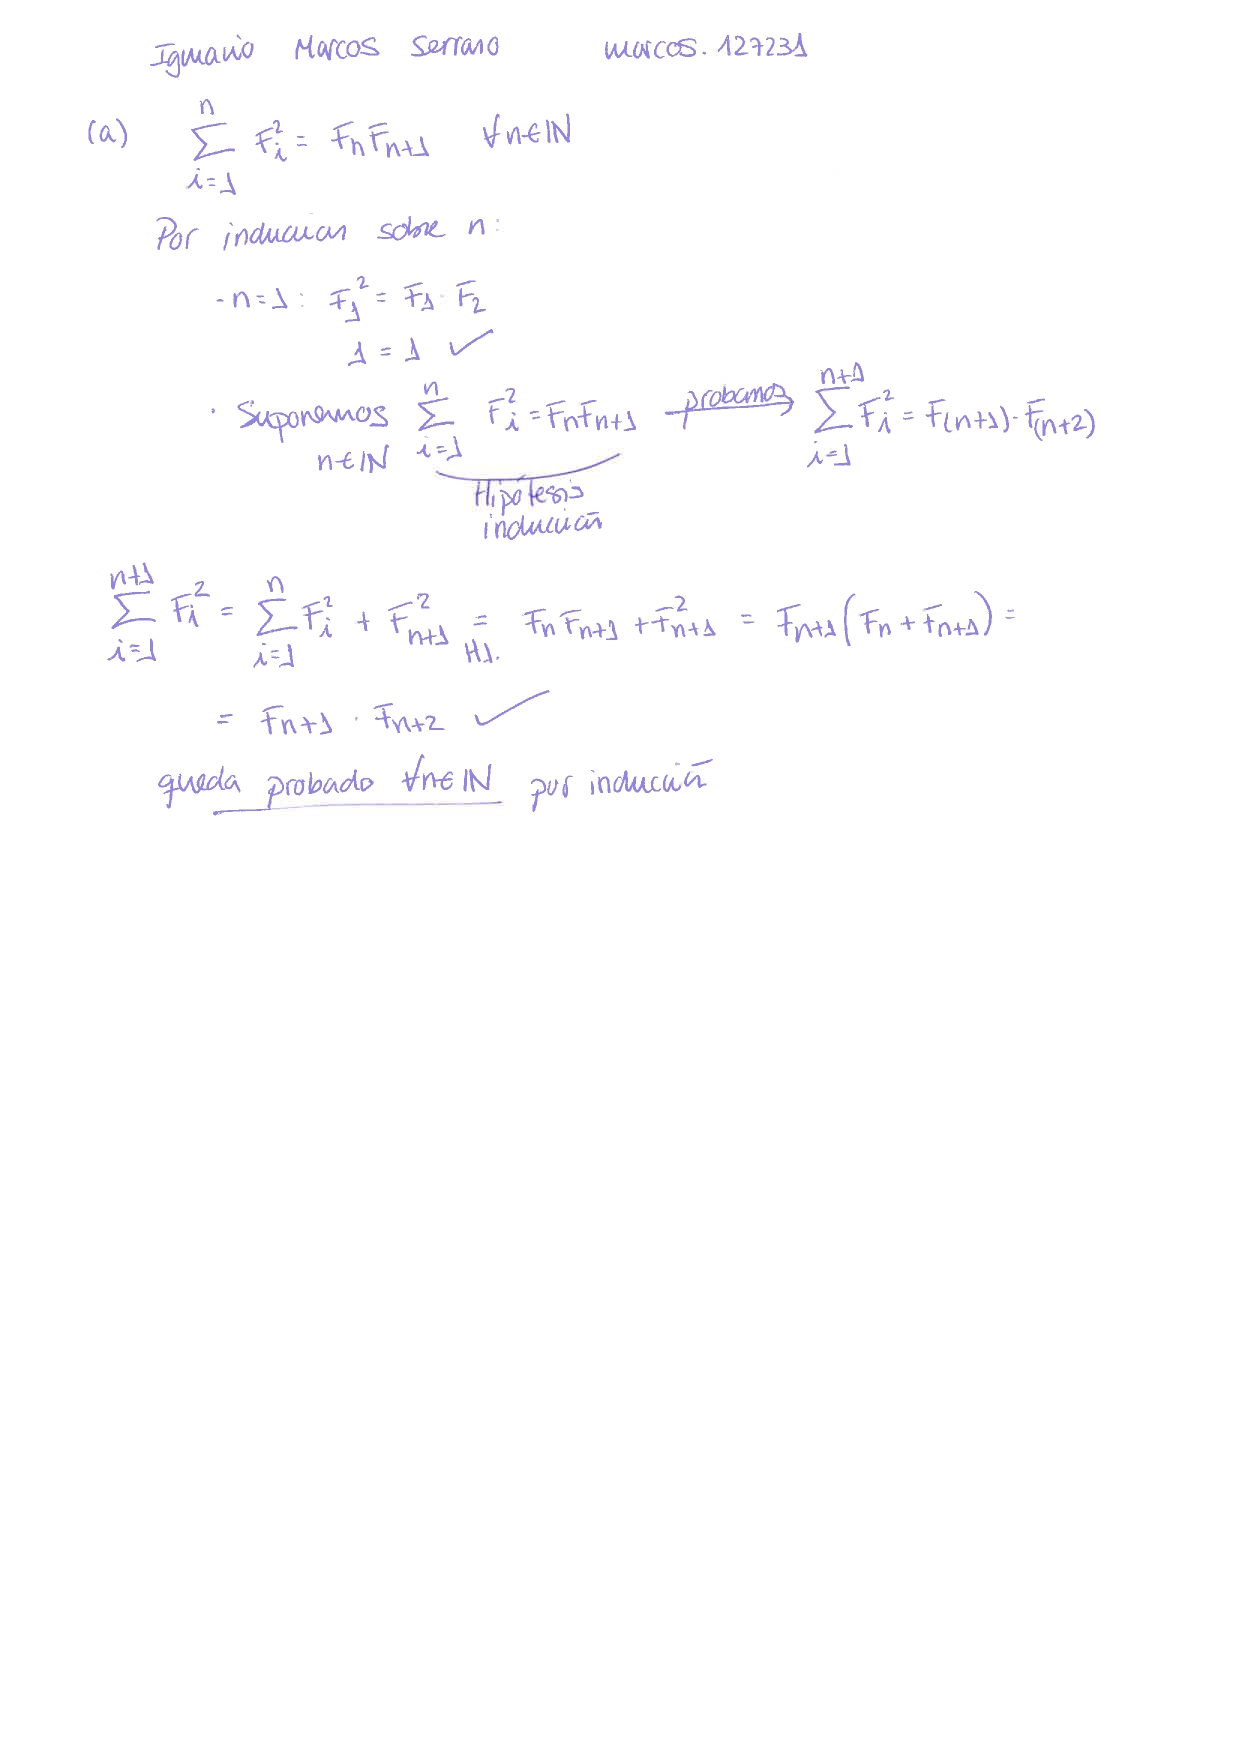 Ignacio Marcos Serrano marcos.127231
(a) ∑_{i=1}^{n} F_i^2 = F_n F_{n+1} ∀n∈ℕ
Por inducción sobre n:
- n=1: F_1^2 = F_1 · F_2
1 = 1 ✓
· Suponemos n∈ℕ ∑_{i=1}^{n} F_i^2 = F_n F_{n+1} probamos → ∑_{i=1}^{n+1} F_i^2 = F_{(n+1)} · F_{(n+2)}
Hipótesis
inducción
∑_{i=1}^{n+1} F_i^2 = ∑_{i=1}^{n} F_i^2 + F_{n+1}^2 = F_n F_{n+1} + F_{n+1}^2 = F_{n+1} (F_n + F_{n+1}) =
HI.
= F_{n+1} · F_{n+2} ✓
queda probado ∀n∈ℕ por inducción